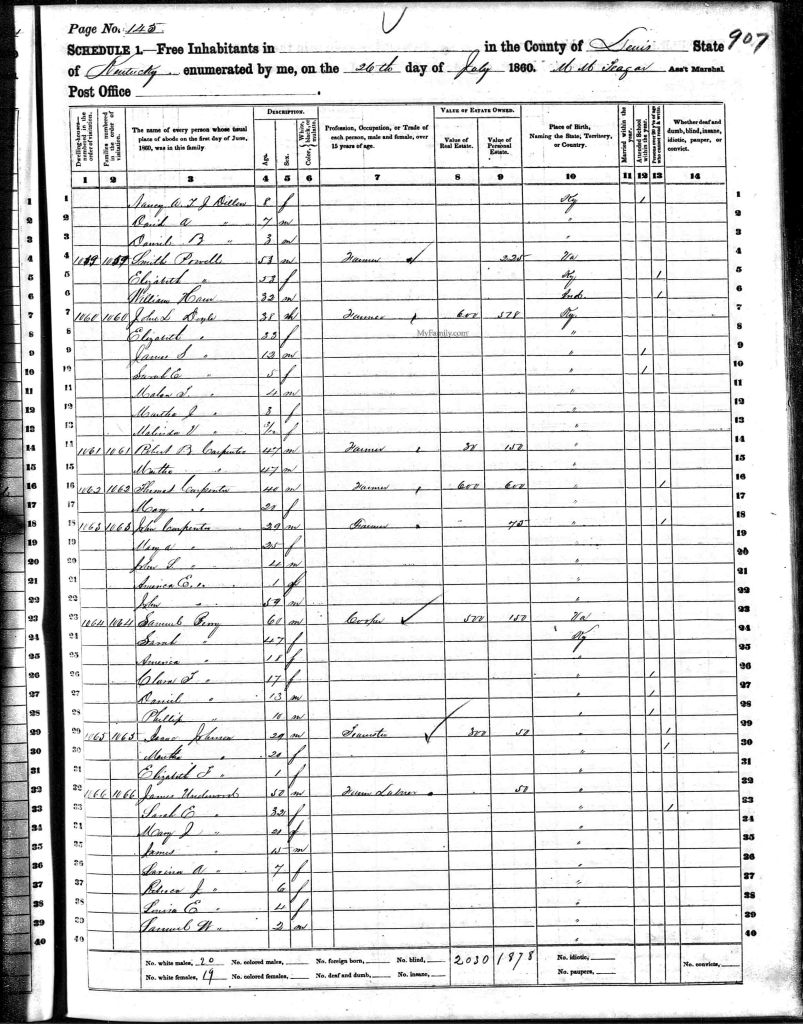 Page No. 145
907
SCHEDULE 1.—Free Inhabitants in in the County of Lewis State
of Kentucky enumerated by me, on the 26th day of July 1860. M M Teagar Ass't Marshal
Post Office
Dwelling-houses—numbered in the order of visitation.
Families numbered in the order of visitation.
The name of every person whose usual place of abode on the first day of June, 1860, was in this family.
DESCRIPTION.
Age.
Sex.
Color, White, black, or mulatto.
Profession, Occupation, or Trade of each person, male and female, over 15 years of age.
VALUE OF ESTATE OWNED.
Value of Real Estate.
Value of Personal Estate.
Place of Birth, Naming the State, Territory, or Country.
Married within the year.
Attended School within the year.
Persons over 20 y'rs of age who cannot read & write.
Whether deaf and dumb, blind, insane, idiotic, pauper, or convict.
1 2 3 4 5 6 7 8 9 10 11 12 13 14
1 Nancy A T J Dillon 8 f Ky 1 1
2 David A " 7 m " 2
3 Daniel B " 3 m " 3
4 1059 1059 Smith Powell 53 m Farmer 225 Va 4
5 Elizabeth " 53 f Ky 1 5
6 William Ham 32 m Ind. 1 6
7 1060 1060 John L Doyle 38 m Farmer 600 578 Ky. 7
8 Elizabeth " 33 f " 8
MyFamily.com
9 James S " 12 m " 1 9
10 Sarah C " 5 f " 1 10
11 T " 4 m " 11
12 Martha J " 3 f " 12
13 Malinda V " f " 13
14 1061 1061 Robert B Carpenter 47 m Farmer 30 150 " 14
15 " 47 m " 15
16 1062 1062 Thomas Carpenter 40 m Farmer 600 600 " 1 16
17 Mary " 20 f " 17
18 1063 1063 John Carpenter 29 m Farmer 75 " 1 18
19 Mary A " 25 f " 19
20 John S. " 4 m " 20
21 America E. " 1 f " 21
22 John " 59 m " 22
23 1064 1064 Samuel Berry 60 m Cooper 500 150 Va 23
24 Sarah " 47 f Ky 24
25 America " 18 f " 25
26 Clara F " 17 f " 1 26
27 Daniel " 13 m " 1 27
28 Phillip " 10 m " 1 28
29 1065 1065 Isaac Johnson 29 m Teamster 300 50 " 1 29
30 Martha " 20 f " 1 30
31 Elizabeth F " 1 f " 31
32 1066 1066 James Underwood 50 m Farm Laborer 50 " 32
33 Sarah E " 32 f " 1 33
34 Mary J " 20 f " 34
35 James " 15 m " 35
36 A " 7 f " 36
37 Rebecca J " 6 f " 37
38 Louisa E " 4 f " 38
39 Samuel W " 2 m " 39
40 " 40
No. white males, 20 No. colored males, No. foreign born, No. blind, 2030 1878 No. idiotic, No. convicts,
No. white females, 19 No. colored females, No. deaf and dumb, No. insane, No. paupers,